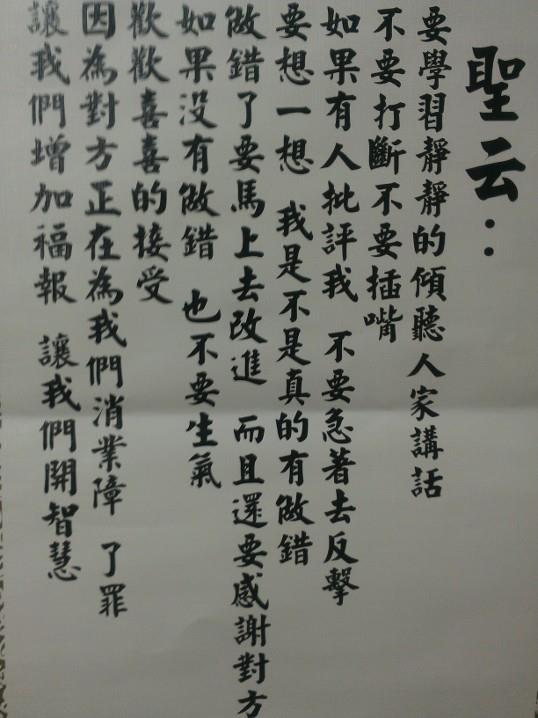 聖云：
要學習靜靜的傾聽人家講話
不要打斷不要插嘴
如果有人批評我 不要急著去反擊
要想一想 我是不是真的有做錯
做錯了要馬上去改進 而且還要感謝對方
如果没有做錯 也不要生氣
歡歡喜喜的接受
因為對方正在為我們消業障 了罪
讓我們增加福報 讓我們開智慧